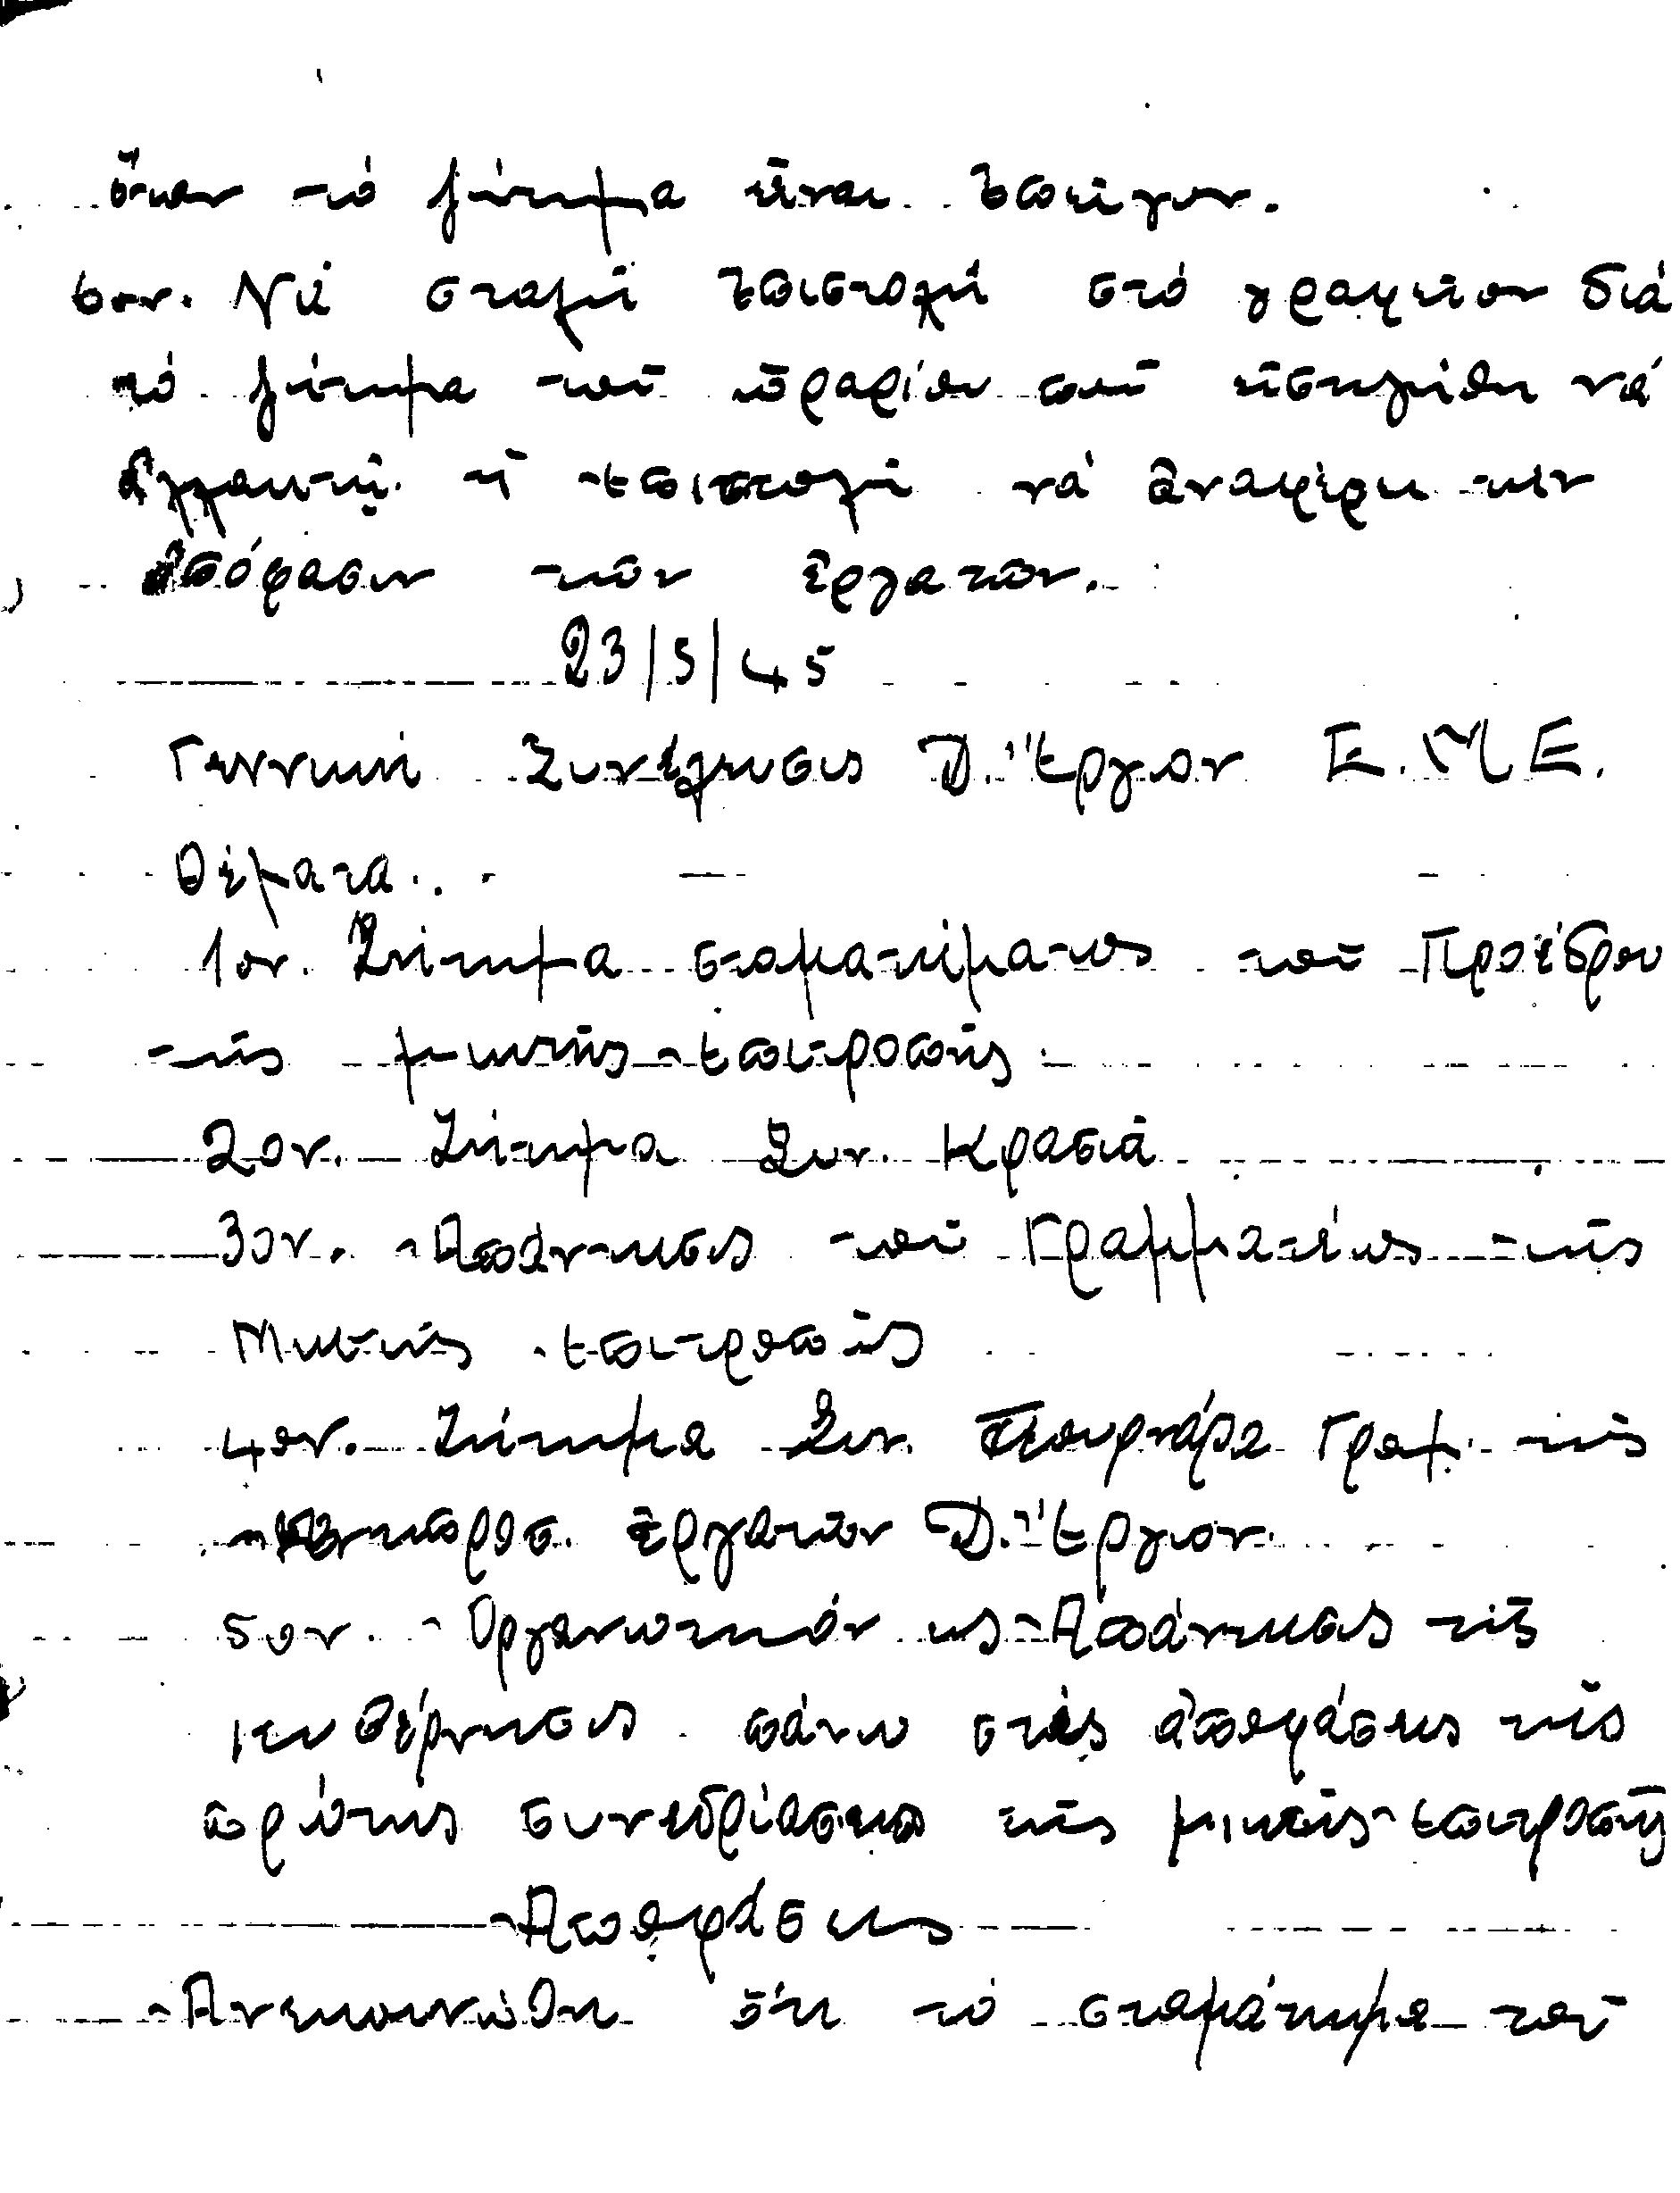 ὅταν τό ζήτημα εἶναι ἐπείγον.
6ον. Νά σταλῆ ἐπιστολή στό γραφεῖον διά
τό ζήτημα τοῦ ὡραρίου πού εἰσηγήθη νά
ἀλλαχτῆ. ἡ ἐπιστολή νά ἀναφέρη τήν
ἀπόφασιν τῶν ἐργατῶν.
23/5/45
Γεννική Συνέλευσις Δ. Ἔργιον Ε.Μ.Ε.
Θέματα.
1ον. Ζήτημα σταματίματος τοῦ Προέδρου
τῆς μικτῆς ἐπιτροπῆς
2ον. Ζήτημα Συν. Κρασιᾶ
3ον. Ἀπάντησις τοῦ Γραμματέως τῆς
Μικτῆς ἐπιτροπῆς
4ον. Ζήτημα Συν. Πουρνάρα Γραμ. τῆς
Ἀντιπροσ. ἐργατῶν Δ. Ἔργιον.
5ον. Ὀργανωτικόν κς Ἀπάντησις τῆς
κυβέρνησις πάνω στές ἀποφάσεις τῆς
πρώτης συνεδρίασεως τῆς μικτῆς ἐπιτροπῆς
Ἀποφάσεις
Ἀνεκοινώθη ὅτι τό σταμάτημα τοῦ